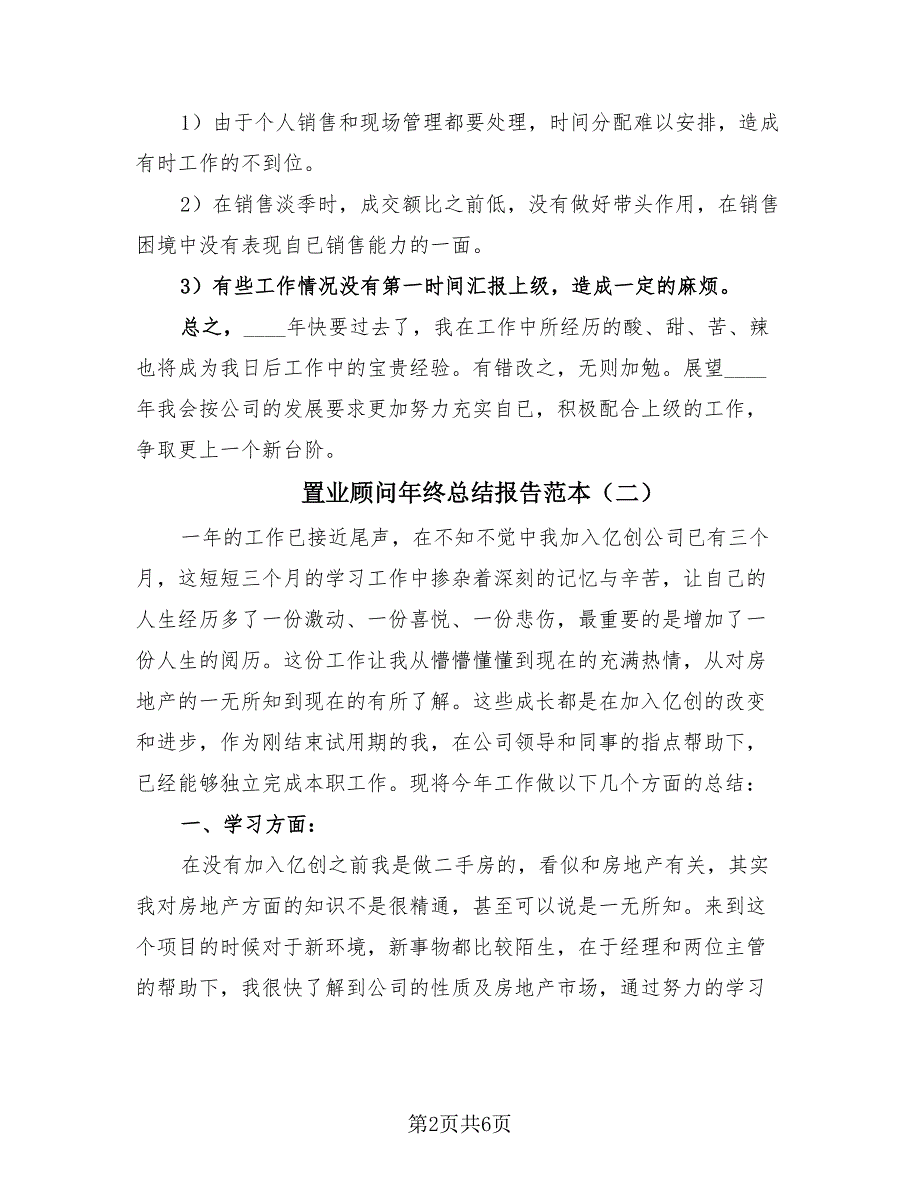 1）由于个人销售和现场管理都要处理，时间分配难以安排，造成
有时工作的不到位。
2）在销售淡季时，成交额比之前低，没有做好带头作用，在销售
困境中没有表现自已销售能力的一面。
3）有些工作情况没有第一时间汇报上级，造成一定的麻烦。
总之，____年快要过去了，我在工作中所经历的酸、甜、苦、辣
也将成为我日后工作中的宝贵经验。有错改之，无则加勉。展望____
年我会按公司的发展要求更加努力充实自已，积极配合上级的工作，
争取更上一个新台阶。
置业顾问年终总结报告范本（二）
一年的工作已接近尾声，在不知不觉中我加入亿创公司已有三个
月，这短短三个月的学习工作中掺杂着深刻的记忆与辛苦，让自己的
人生经历多了一份激动、一份喜悦、一份悲伤，最重要的是增加了一
份人生的阅历。这份工作让我从懵懵懂懂到现在的充满热情，从对房
地产的一无所知到现在的有所了解。这些成长都是在加入亿创的改变
和进步，作为刚结束试用期的我，在公司领导和同事的指点帮助下，
已经能够独立完成本职工作。现将今年工作做以下几个方面的总结：
一、学习方面：
在没有加入亿创之前我是做二手房的，看似和房地产有关，其实
我对房地产方面的知识不是很精通，甚至可以说是一无所知。来到这
个项目的时候对于新环境，新事物都比较陌生，在于经理和两位主管
的帮助下，我很快了解到公司的性质及房地产市场，通过努力的学习
第2页共6页